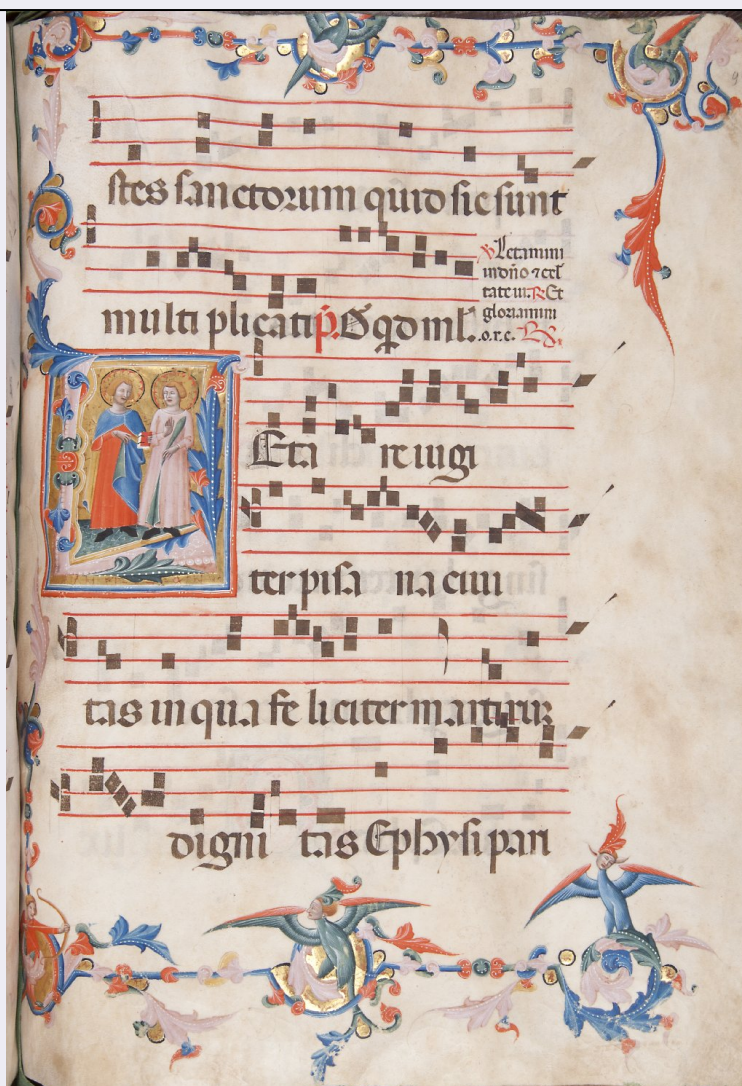 stes sanctorum quid sic sunt
multi plicati p̄. G qd ml̄.
℣ Letamini
in dn̄o ⁊ exl
tate iu. ℟ Et
gloriamini
.o.r.c. ℟
Leta re iugi
ter pisa na ciui
tas in qua fe liciter martirum
digni tas Ephysi pan